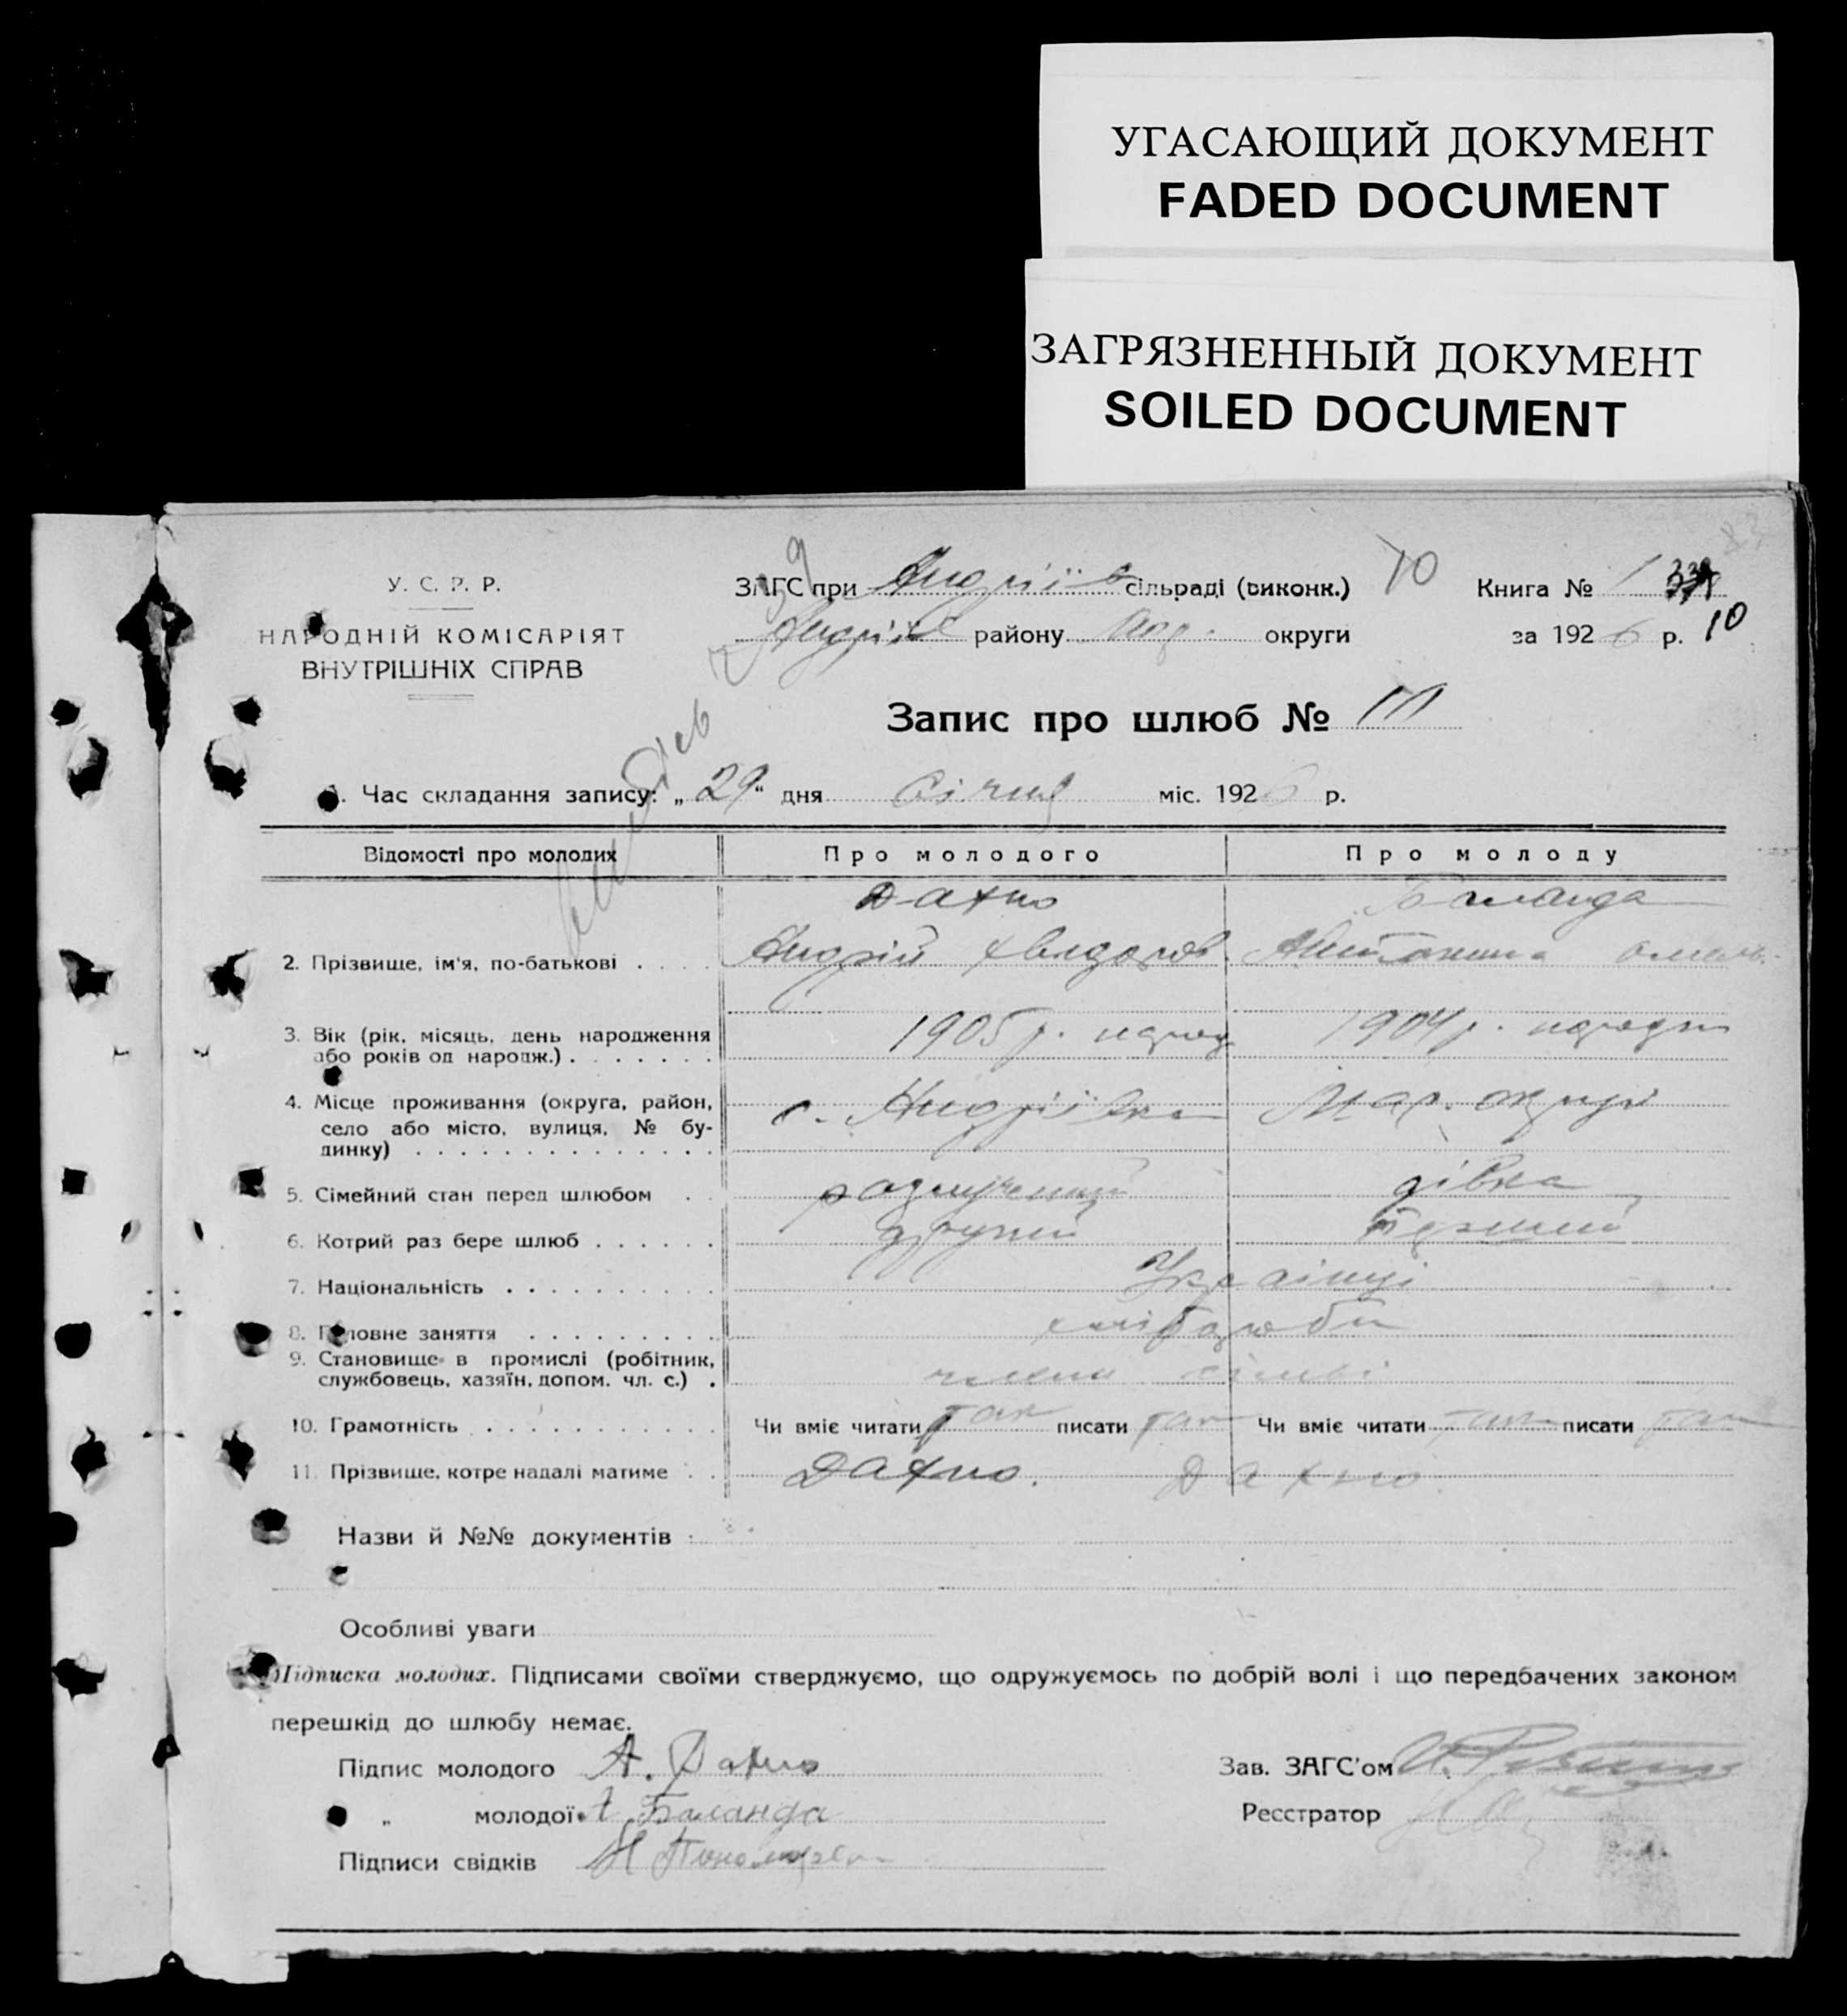 УГАСАЮЩИЙ ДОКУМЕНТ
FADED DOCUMENT
ЗАГРЯЗНЕННЫЙ ДОКУМЕНТ
SOILED DOCUMENT
У. С. Р. Р.
НАРОДНІЙ КОМІСАРІЯТ
ВНУТРІШНІХ СПРАВ
ЗАГС при Андріїв сільраді (виконк.) 10 Книга № 1
Андріїв району округи за 1926 р. 10
Запис про шлюб №
1. Час складання запису: „29“ дня січня міс. 1926 р.
Відомості про молодих Про молодого Про молоду
Дахно Баланда
2. Прізвище, ім'я, по-батькові Андрій Хведоров. Антонина Омель.
3. Вік (рік, місяць, день народження 1905 р. 1904 р.
або років од народж.)
4. Місце проживання (округа, район, с. Андріївка Мар. округи
село або місто, вулиця, № бу-
динку)
5. Сімейний стан перед шлюбом розлучений дівка
6. Котрий раз бере шлюб другий перший
7. Національність Українці
8. Головне заняття хлібороби
9. Становище в промислі (робітник,
службовець, хазяїн, допом. чл. с.) члени сімьі
10. Грамотність Чи вміє читати так писати так Чи вміє читати так писати так
11. Прізвище, котре надалі матиме Дахно. Дахно.
Назви й №№ документів :
Особливі уваги
Підписка молодих. Підписами своїми стверджуємо, що одружуємось по добрій волі і що передбачених законом
перешкід до шлюбу немає.
Підпис молодого А. Дахно Зав. ЗАГС'ом
„ молодої А Баланда Ресстратор
Підписи свідків